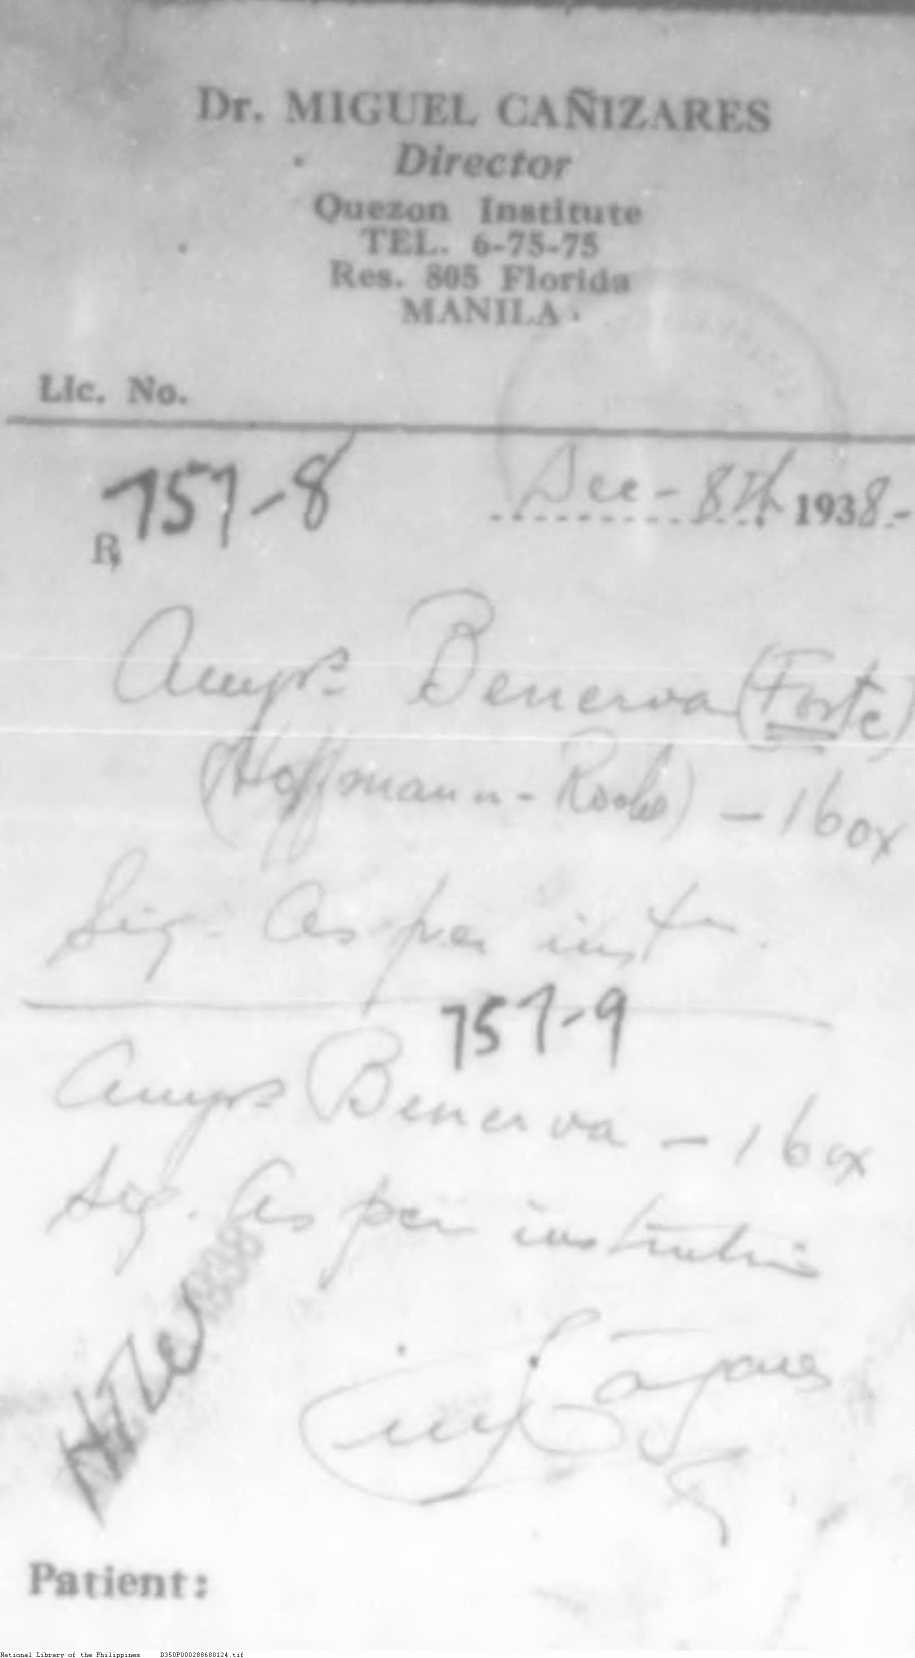 Dr. MIGUEL CAÑIZARES
Director
Quezon Institute
TEL. 6-75-75
Res. 805 Florida
MANILA
Lic. No.
757-8
Dec - 8th 1938.-
℞
Amps. Benerva (Forte)
(Hoffmann-Roche) - 1 box
Sig. As per inst
757-9
Amps Benerva - 1 box
Sig. As per instruction
Patient:
National Library of the Philippines D350P000288680124.tif